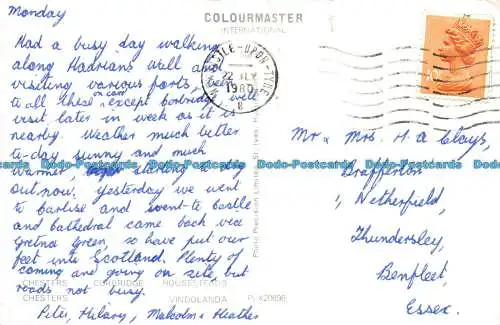 Monday
COLOURMASTER
INTERNATIONAL
Had a busy day walking
along Hadrians Wall and
visiting various forts, been
in car
to all these except Corbridge will
visit later in week as it is
nearby. Weather much better
to-day sunny and much
warmer starting to dry
out now. Yesterday we went
to Carlise and went to Castle
and Cathedral came back via
Gretna Green, so have put our
feet into Scotland. Plenty of
coming and going on site, but
roads not busy.
Peter, Hilary, Malcolm & Heather
CHESTERS CORBRIDGE HOUSESTEADS
CHESTERS VINDOLANDA
NEWCASTLE-UPON-TYNE
22 JLY
1980
Mr & Mrs H. A Clays,
Brafferton
Netherfield,
Thundersley,
Benfleet,
Essex.
Dodo-Postcards Dodo-Postcards Dodo-Postcards Dodo-Postcards